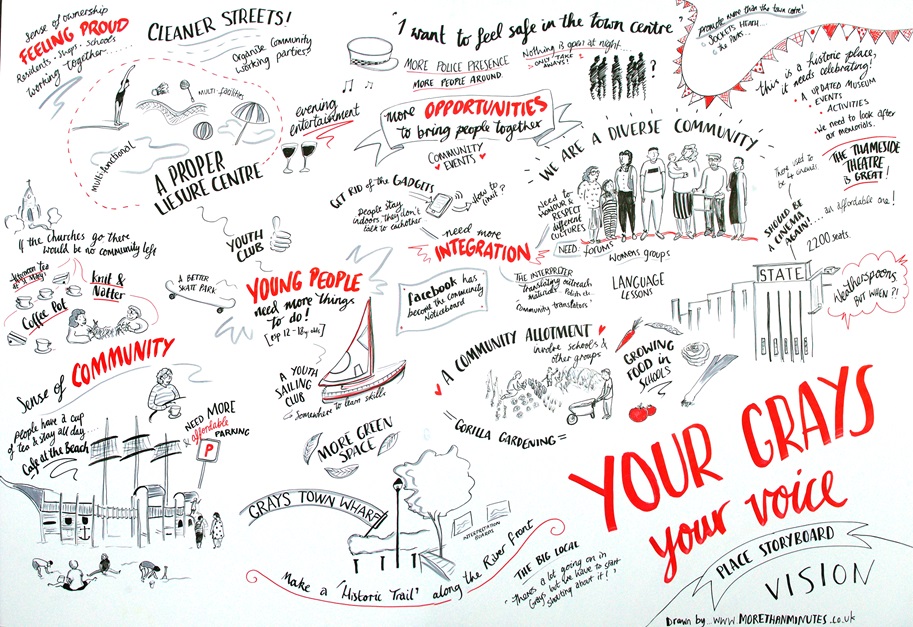 Sense of ownership
FEELING PROUD
Residents - Shops - Schools
Working together
CLEANER STREETS!
Organise Community
working parties?
MULTI facilities
Multi-functional
A PROPER
LIESURE CENTRE
evening
entertainment
"I want to feel safe in the town centre"
MORE POLICE PRESENCE
MORE PEOPLE AROUND.
Nothing is open at night...
ONLY TAKE
AWAYS!
?
more OPPORTUNITIES
to bring people together
COMMUNITY
EVENTS
promote more than the town centre!
SOCKETS HEATH...
the Parks...
this is a historic place,
it needs celebrating!
A UPDATED MUSEUM
EVENTS
ACTIVITIES
We need to look after
our memorials.
THE THAMESIDE
THEATRE
is GREAT!
WE ARE A DIVERSE COMMUNITY
Need to
HONOUR &
RESPECT
different
CULTURES
NEED forums
Womens groups
LANGUAGE
LESSONS
There used to
be 4 cinemas
SHOULD BE
A CINEMA
AGAIN!...
an affordable one!
2200 seats.
STATE
Weatherspoons
BUT WHEN?!
GET RID of the GADGETS
People stay
indoors, they don't
talk to eachother
how to
limit?
need more
INTEGRATION
THE INTERPRETER
"translating outreach
materials" Polish etc
"community translators"
Facebook has
become the community
Noticeboard
If the churches go there
would be no community left
Afternoon tea
Coffee Pot
Knit &
Natter
Sense of COMMUNITY
People have a cup
of tea & stay all day....
Cafe at the Beach
NEED MORE
& affordable
PARKING
P
YOUTH
CLUB
A BETTER
SKATE PARK
YOUNG PEOPLE
need more things
to do!
A YOUTH
SAILING
CLUB
Somewhere to learn skills
A COMMUNITY ALLOTMENT
involve schools &
other groups
GROWING
FOOD in
SCHOOLS
GORILLA GARDENING =
MORE GREEN
SPACE
GRAYS TOWN WHARF
INTERPRETATION
BOARDS
Make a 'Historic Trail' along the River Front
THE BIG LOCAL
"There's a lot going on in
Grays but we have to start
shouting about it!"
YOUR GRAYS
your voice
PLACE STORYBOARD
VISION
Drawn by... www.MORETHANMINUTES.co.uk